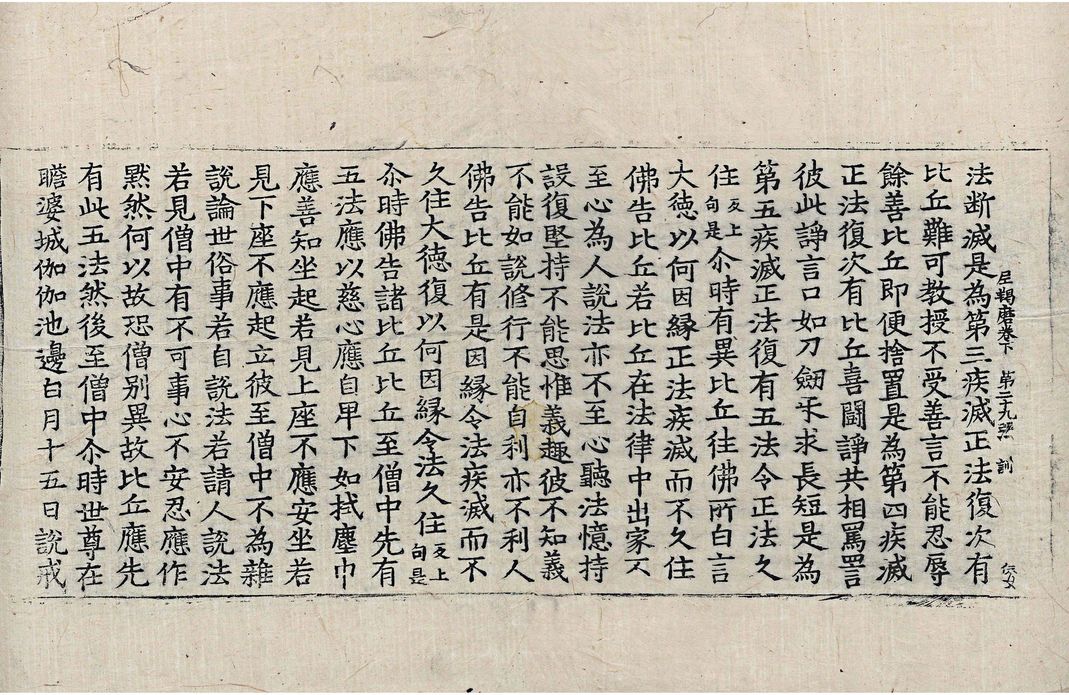 法断滅是為第三疾滅正法復次有
尼羯磨卷下 第二九張 訓
比丘難可教授不受善言不能忍辱
餘善比丘即便捨置是為第四疾滅
正法復次有比丘喜鬪諍共相罵詈
彼此諍言口如刀劒㸦求長短是為
第五疾滅正法復有五法令正法久
住反上句是尒時有異比丘往佛所白言
大徳以何因縁正法疾滅而不久住
佛告比丘若比丘在法律中出家不
至心為人説法亦不至心聽法憶持
設復堅持不能思惟義趣彼不知義
不能如説修行不能自利亦不利人
佛告比丘有是因縁令法疾滅而不
久住大徳復以何因縁令法久住反上句是
尒時佛告諸比丘比丘至僧中先有
五法應以慈心應自卑下如拭塵巾
應善知坐起若見上座不應安坐若
見下座不應起立彼至僧中不為雜
説論世俗事若自説法若請人説法
若見僧中有不可事心不安忍應作
黙然何以故恐僧別異故比丘應先
有此五法然後至僧中尒時世尊在
瞻婆城伽伽池邊白月十五日説戒